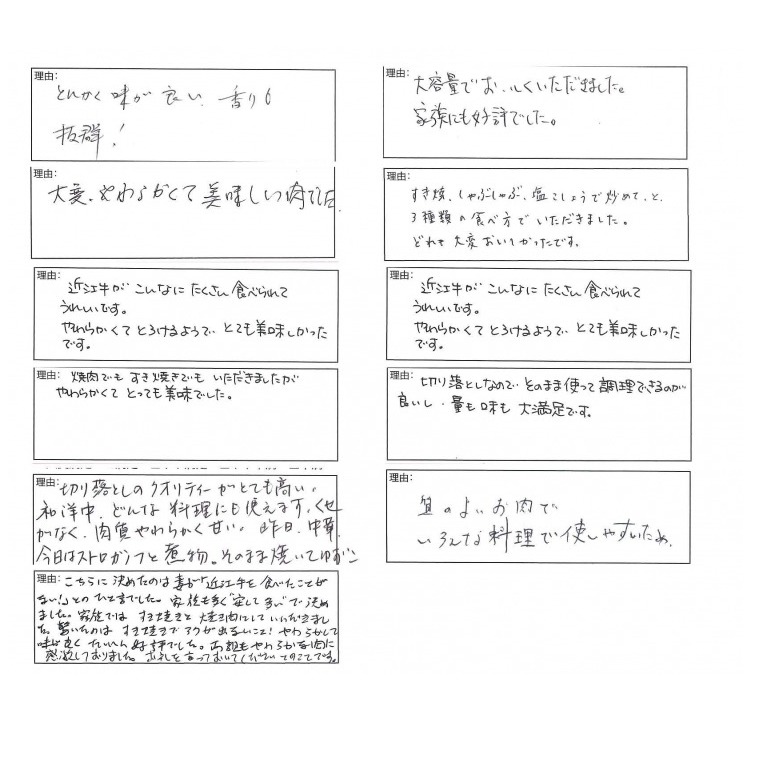 理由:
とにかく味が良い、香りも
抜群!
理由:
大変、やわらかくて美味しい肉でした。
理由:
近江牛が こんなに たくさん 食べられて
うれしいです。
やわらかくて とろけるようで、とても美味しかった
です。
理由:
焼肉でも すき焼きでも いただきましたが
やわらかくて とっても美味でした。
理由:
切り落としの クオリティーがとても高い。
和洋中、どんな料理にも使えます。くせ
がなく、肉質やわらかく甘い。昨日、中華、
今日はストロガノフと煮物。そのまま焼いてゆずこ
理由:
こちらに決めたのは妻が「近江牛を食べたことが
ない!」とのひと言でした。家族も多く"安して多い"で決め
ました。家族では すき焼きと 焼き肉にして いただきまし
た。驚いたのは すき焼きで アクが出ないこと! やわらかくて
味が良く たいへん好評でした。両親もやわらかな肉に
感激しておりました。お礼を言っておいてくださいとのことです。
理由:
大容量でおいしくいただきました。
家族にも好評でした。
理由:
すき焼、しゃぶしゃぶ、塩こしょうで炒めて、と、
3種類の食べ方でいただきました。
どれも大変おいしかったです。
理由:
近江牛が こんなに たくさん 食べられて
うれしいです。
やわらかくて とろけるようで、とても美味しかった
です。
理由:
切り落としなので そのまま使って調理できるのが
良いし、量も味も 大満足です。
理由:
質のよいお肉で
いろんな料理で使いやすいため、